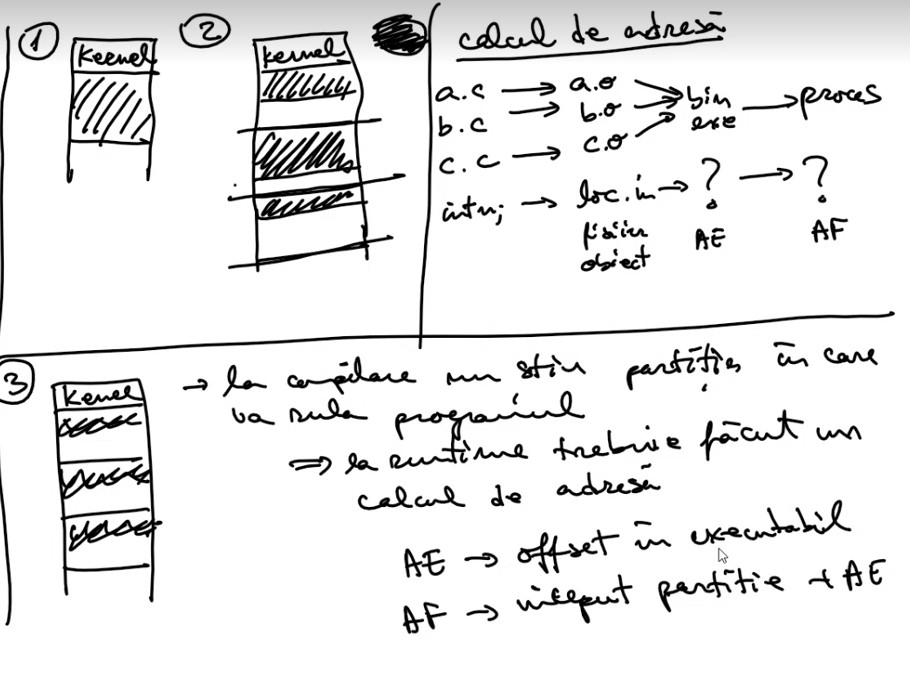 1
Kernel
2
kernel
calcul de adresă
a.c → a.o
b.c → b.o
c.c → c.o
bin exe → proces
int n; → loc. în → ? → ?
fișier obiect
AE
AF
3
Kernel
→ la compilare nu știu partiția în care
va rula programul
⇒ la runtime trebuie făcut un
calcul de adresă
AE → offset în executabil
AF → început partiție + AE